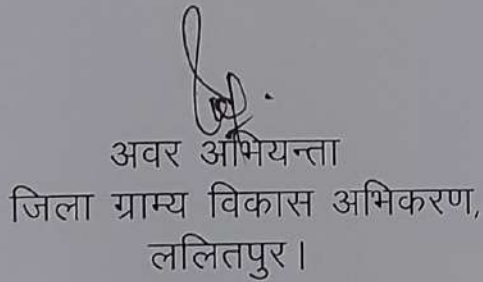 अवर अभियन्ता
जिला ग्राम्य विकास अभिकरण,
ललितपुर।